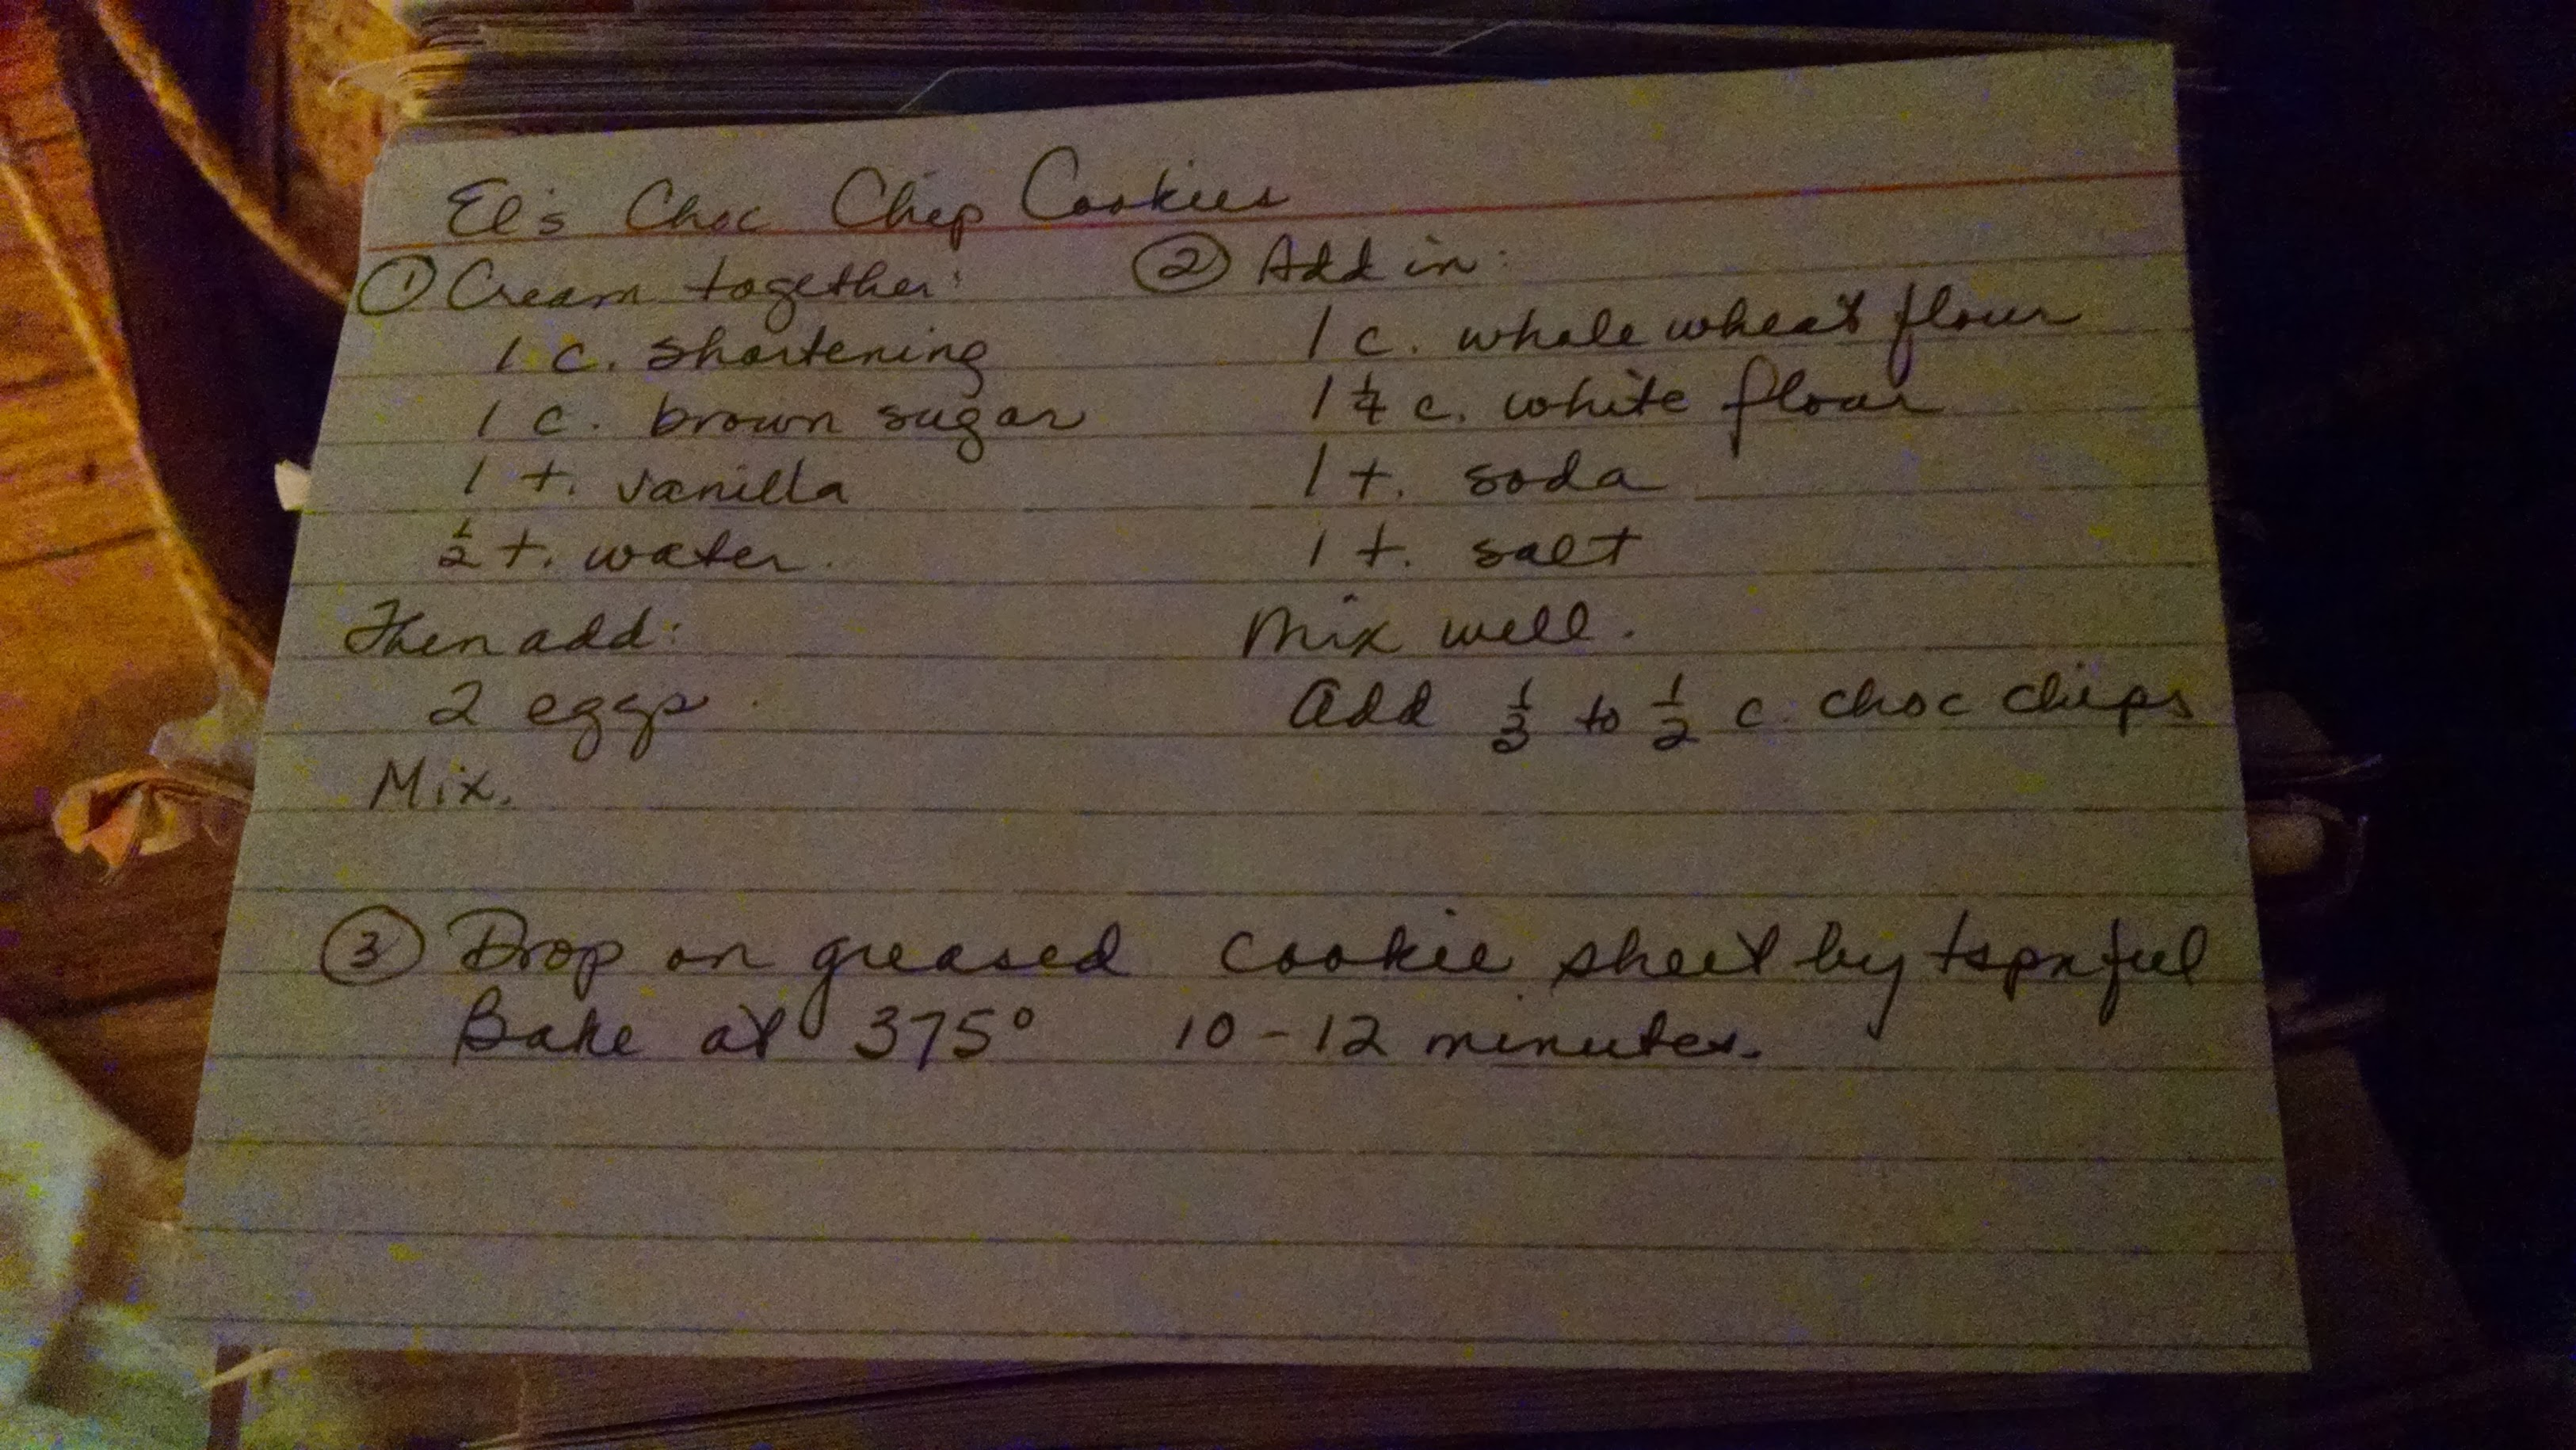 El's Choc Chip Cookies
① Cream together:
1 c. shortening
1 c. brown sugar
1 t. vanilla
½ t. water.
Then add:
2 eggs.
Mix.
② Add in:
1 c. whole wheat flour
1 ¼ c. white flour
1 t. soda
1 t. salt
Mix well.
Add ⅓ to ½ c. choc chips
③ Drop on greased cookie sheet by tspnful
Bake at 375° 10-12 minutes.